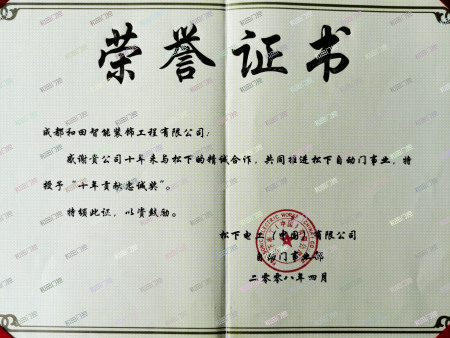 荣誉证书
成都和田智能装饰工程有限公司：
感谢贵公司十年来与松下的精诚合作，共同推进松下自动门事业，特
授予“十年贡献忠诚奖”。
特颁此证，以资鼓励。
松下电工（中国）有限公司
自动门事业部
二〇〇八年四月